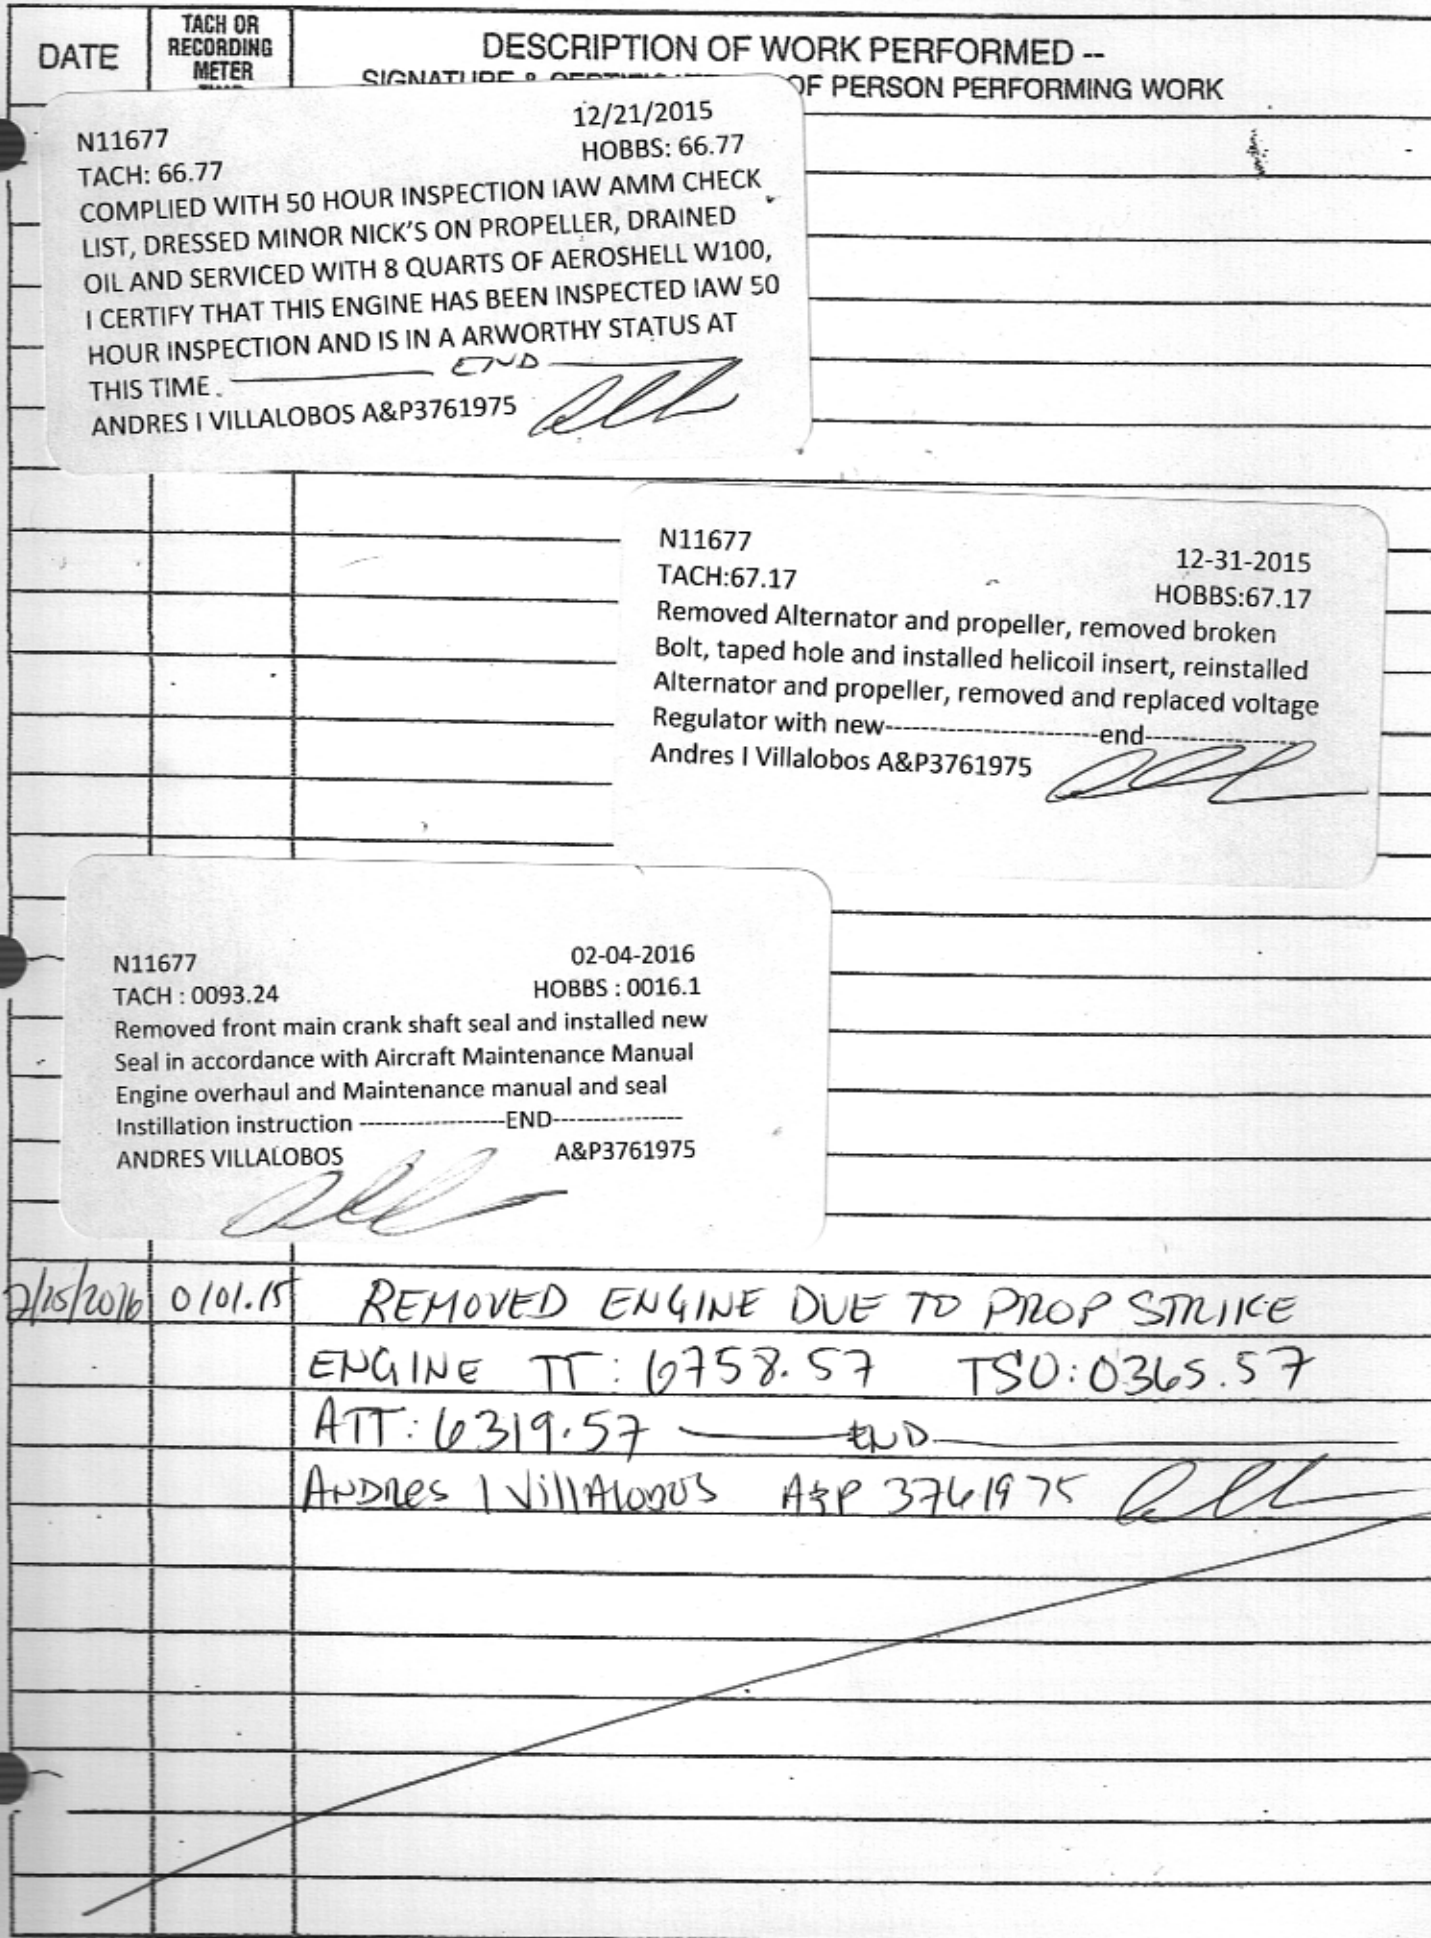 DATE
TACH OR
RECORDING
METER
DESCRIPTION OF WORK PERFORMED --
SIGNATURE & OF PERSON PERFORMING WORK
N11677 12/21/2015
TACH: 66.77 HOBBS: 66.77
COMPLIED WITH 50 HOUR INSPECTION IAW AMM CHECK
LIST, DRESSED MINOR NICK'S ON PROPELLER, DRAINED
OIL AND SERVICED WITH 8 QUARTS OF AEROSHELL W100,
I CERTIFY THAT THIS ENGINE HAS BEEN INSPECTED IAW 50
HOUR INSPECTION AND IS IN A ARWORTHY STATUS AT
THIS TIME. END
ANDRES I VILLALOBOS A&P3761975
N11677 12-31-2015
TACH:67.17 HOBBS:67.17
Removed Alternator and propeller, removed broken
Bolt, taped hole and installed helicoil insert, reinstalled
Alternator and propeller, removed and replaced voltage
Regulator with new------------------------end-----------------
Andres I Villalobos A&P3761975
N11677 02-04-2016
TACH : 0093.24 HOBBS : 0016.1
Removed front main crank shaft seal and installed new
Seal in accordance with Aircraft Maintenance Manual
Engine overhaul and Maintenance manual and seal
Instillation instruction -------------------END-----------------
ANDRES VILLALOBOS A&P3761975
2/25/2016 0101.15 REMOVED ENGINE DUE TO PROP STRIKE
ENGINE TT: 6758.57 TSO: 0365.57
ATT: 6319.57 END
ANDRES I VILLALOBOS A&P 3761975